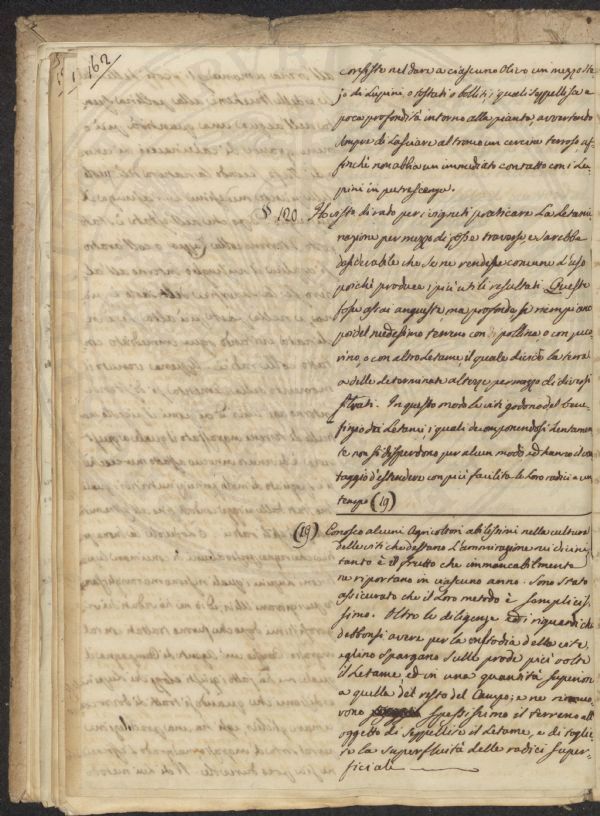 162
consiste nel dare a ciascuno Olivo un mezzo sta=
jo di Lupini o tostati o bolliti, i quali si seppellisca a
poca profondità intorno alla pianta, avvertendo
sempre di lasciare al tronco un cercine terroso, af=
finchè non abbia un immediato contatto con i Lu=
pini in putrescenza.
§ 120. Ho visto di rado per i vigneti praticare la Letami=
nazione per mezzo di fosse traverse e sarebbe
desiderabile che se ne rendesse comune l'uso
poichè produce i più utili resultati. Queste
fosse assai anguste ma profonde si riempiano
poi del medesimo terreno con pollina, o con peco=
rino, o con altro Letame, il quale divida la terra
a delle determinate altezze per mezzo di diversi
strati. In questo modo le viti godono del bene=
fizio dei Letami, i quali decomponendosi lentamen=
te non si disperdono per alcun modo ed hanno il van=
taggio d'estendere con più facilità le loro radici a un
tempo (19)
(19) Conosco alcuni Agricoltori abilissimi nella cultura
delle viti che destano l'ammirazione nei vicini
tanto è il frutto che immancabilmente
ne riportano in ciascuno anno. Sono stato
assicurato che il loro metodo è semplicis=
simo. Oltre le diligenze ed i riguardi che
debbonsi avere per la custodia delle viti,
eglino spargano sulle prode più volte
il Letame, ed in una quantità superiore
a quella del resto del Campo; e ne rimuo=
vono spessissimo il terreno all'
oggetto di seppellire il Letame, e di toglie=
re la superfluità delle radici super=
ficiali